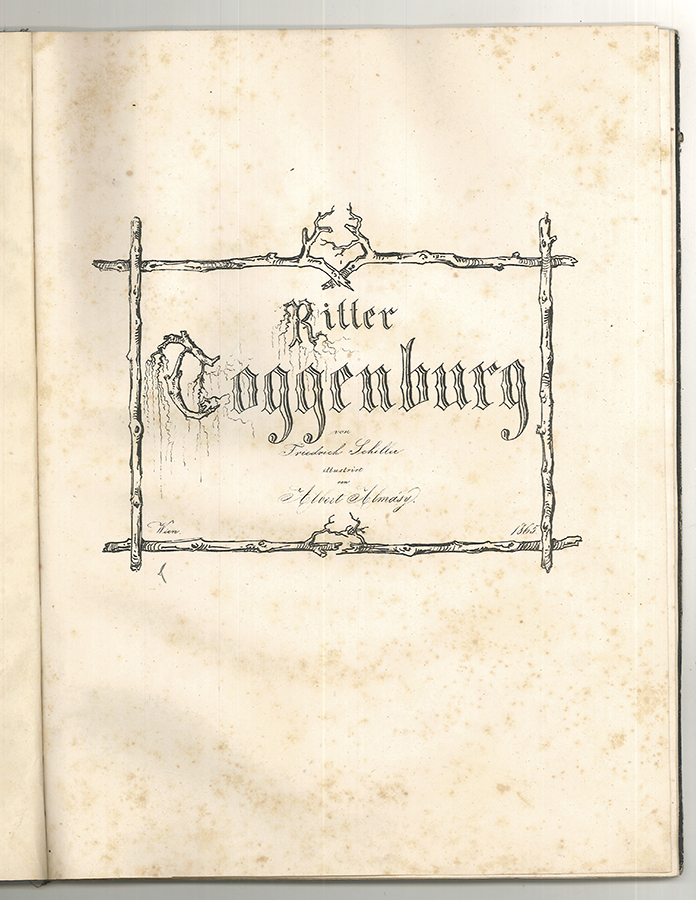 Ritter
Toggenburg
von
Friedrich Schiller
illustrirt
von
Albert Almásy.
Wien.
1865